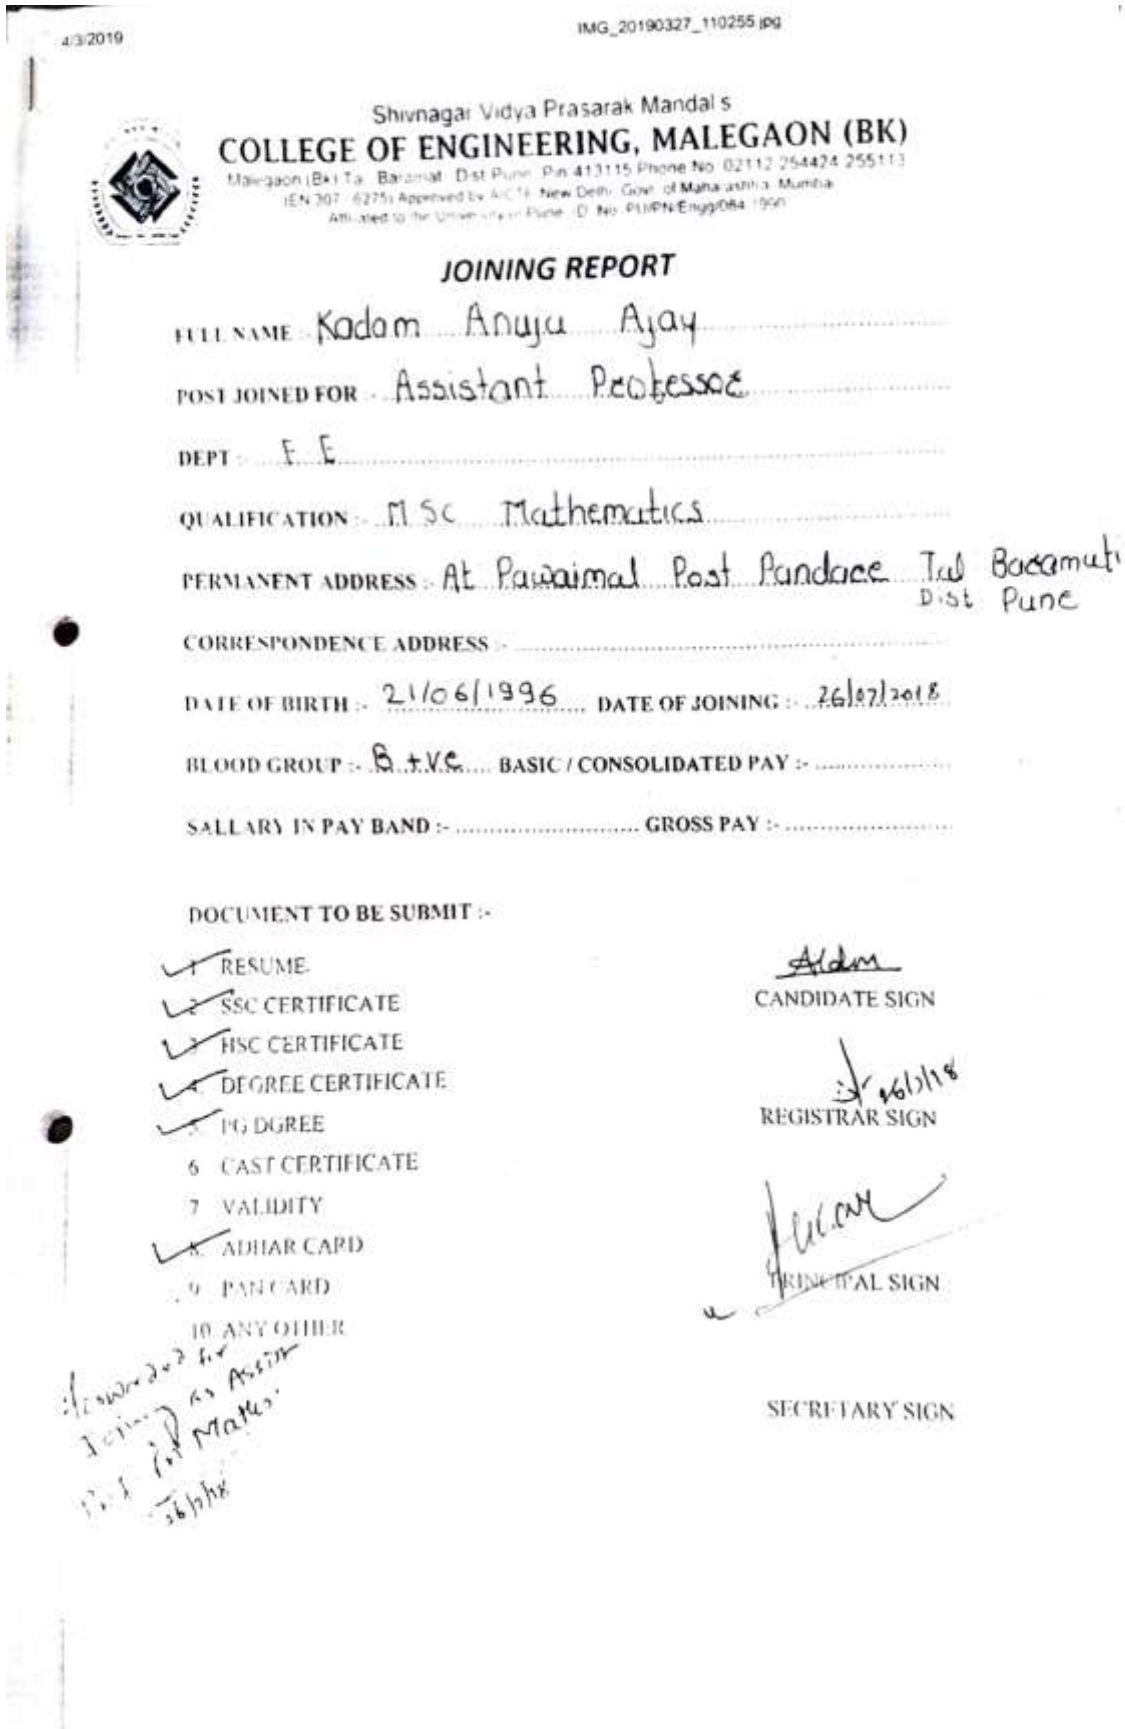 4/3/2019
IMG_20190327_110255.jpg
Shivnagar Vidya Prasarak Mandal's
COLLEGE OF ENGINEERING, MALEGAON (BK)
Malegaon (Bk) Ta. Baramati Dist Pune Pin 413115 Phone No. 02112 254424 255113
(EN 307 - 6275) Approved by AICTE New Delhi Govt of Maharashtra Mumbai
Affiliated to the University of Pune ID No PU/PN/Engg/084 1990
JOINING REPORT
FULL NAME :- Kadam Anuja Ajay
POST JOINED FOR :- Assistant Professor
DEPT :- F E
QUALIFICATION :- MSc Mathematics
PERMANENT ADDRESS :- At Pawaimal Post Pandare Tal Baramati
Dist Pune
CORRESPONDENCE ADDRESS :-
DATE OF BIRTH :- 21/06/1996 DATE OF JOINING :- 26/07/2018
BLOOD GROUP :- B +ve BASIC / CONSOLIDATED PAY :-
SALLARY IN PAY BAND :- GROSS PAY :-
DOCUMENT TO BE SUBMIT :-
1 RESUME.
2 SSC CERTIFICATE
CANDIDATE SIGN
3 HSC CERTIFICATE
4. DEGREE CERTIFICATE
26/7/18
5 PG DGREE
REGISTRAR SIGN
6 CAST CERTIFICATE
7 VALIDITY
8. ADHAR CARD
9 PAN CARD
PRINCIPAL SIGN
10. ANY OTHER
Forwarded for
Joining as Assist
Prof for Maths.
26/7/18
SECRETARY SIGN